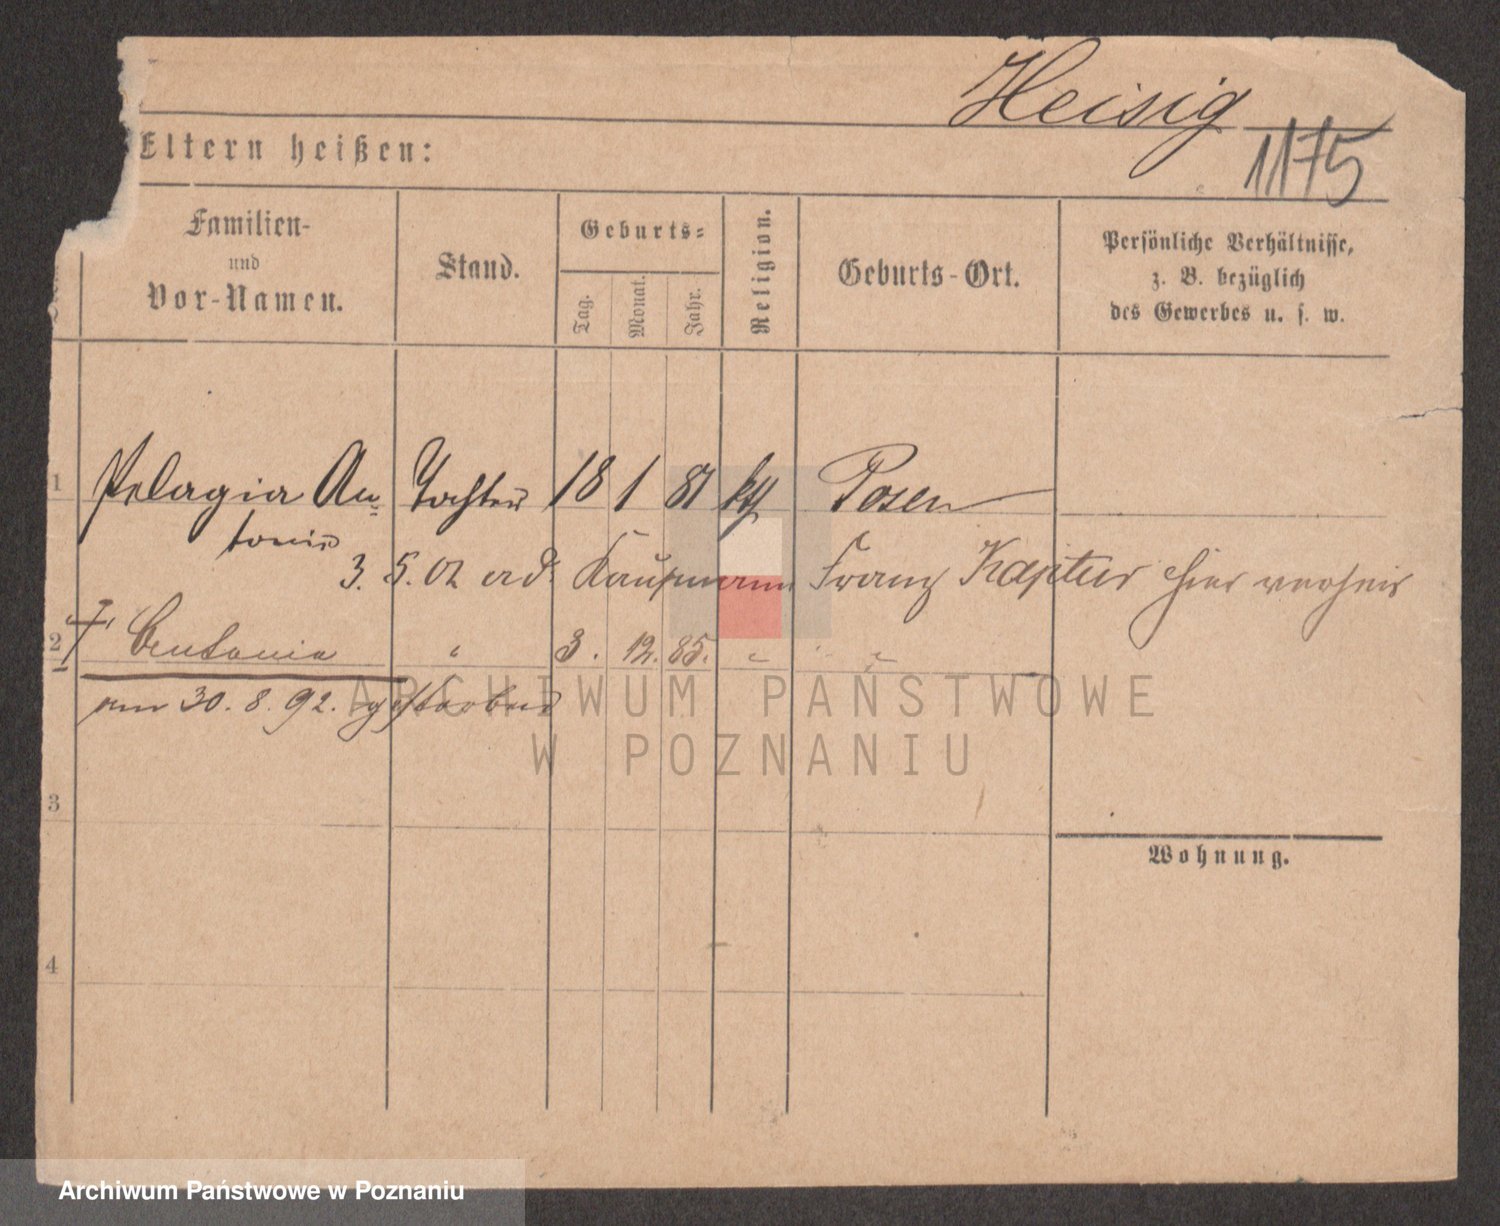 Heisig
1175
Eltern heißen:
Familien-
und
Vor-Namen.
Stand.
Geburts=
Tag.
Monat.
Jahr.
Religion.
Geburts-Ort.
Persönliche Verhältnisse,
z. B. bezüglich
des Gewerbes u. s. w.
1 Pelagia An= Tochter 18 1 81 kth Posen
tonie
3. 5. 02 a. d. Kaufmann Franz Kaptur hier verheir
2 † Centonia " 3. 12. 85. " " "
am 30. 8. 92. gestorben
ARCHIWUM PAŃSTWOWE
W POZNANIU
3
Wohnung.
4
Archiwum Państwowe w Poznaniu